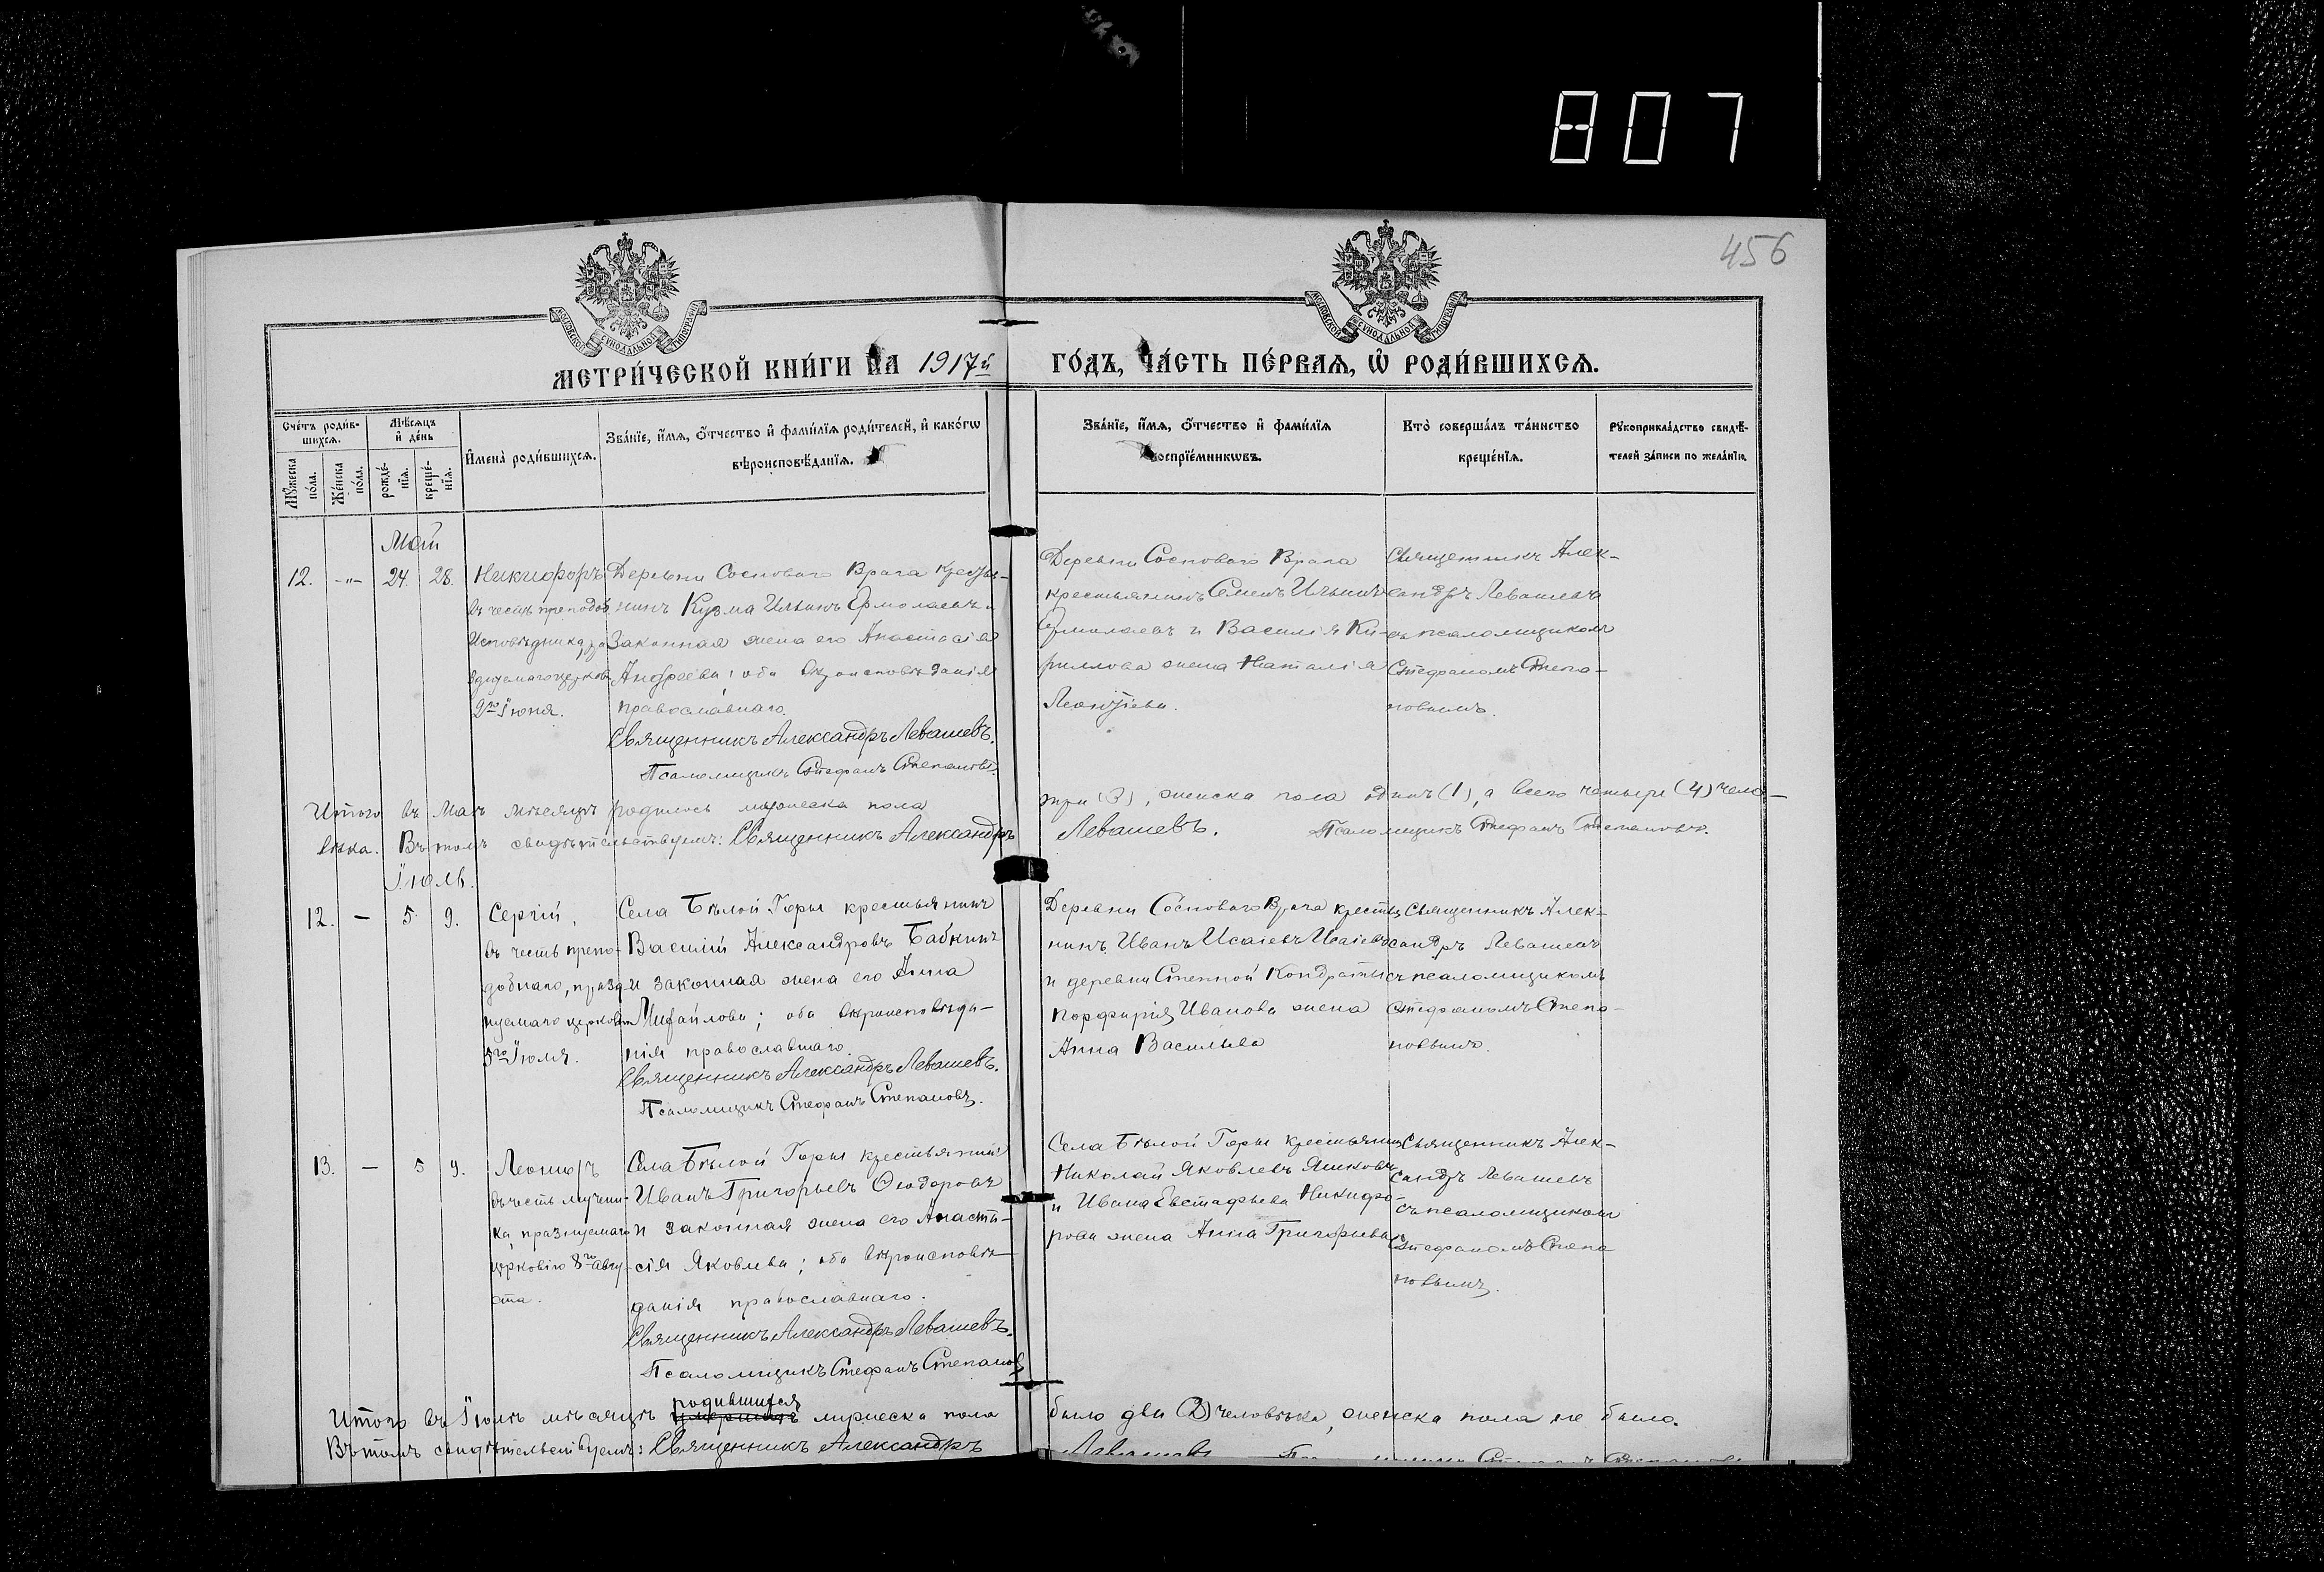 807
456
МОСКОВСКОЙ СѴНОДАЛЬНОЙ ТИПОГРАФІИ
МОСКОВСКОЙ СѴНОДАЛЬНОЙ ТИПОГРАФІИ
МЕТРИ́ЧЕСКОЙ КНИ́ГИ НА 1917й
ГО́ДЪ, ЧА́СТЬ ПЕ́РВАѦ, Ѽ РОДИ́ВШИХСѦ.
Сче́тъ роди́в-
шихсѧ.
Мꙋ́жеска по́ла.
Же́нска по́ла.
Мѣ́сѧцъ
и҆ де́нь
рожде́-
нїѧ.
креще́-
нїѧ.
И҆мена̀ роди́вшихсѧ.
Зва́нїе, и҆́мѧ, ѻ҆́тчество и҆ фами́лїѧ роди́телей, и҆ како́гѡ
вѣроисповѣ́данїѧ.
Зва́нїе, и҆́мѧ, ѻ҆́тчество и҆ фами́лїѧ
воспрїе́мникѡвъ.
Кто̀ соверша́лъ та́инство
креще́нїѧ.
Рꙋкоприкла́дство свидѣ́-
телей за́писи по жела́нїю.
Май
12. -"- 24. 28.
Никифоръ
въ честь преподоб.
Исповѣдника, пра
зднуемаго церков.
2го Іюня.
Деревни Соснового Врага крестья-
нинъ Кузма Ильинъ Ермолаевъ и
законная жена его Анастасія
Андреева; оба вѣроисповѣданія
православнаго.
Священникъ Александръ Левашевъ.
Псаломщикъ Стефанъ Степановъ.
Деревни Соснового Врага
крестьянинъ Семенъ Ильинъ
Ермолаевъ и Василія Ки-
риллова жена Наталія
Леонтіева.
Священникъ Алек-
сандръ Левашевъ
съ псаломщикомъ
Стефаномъ Степа-
новымъ.
Итого въ Маѣ мѣсяцѣ родилось мужеска пола три (3), женска пола одинъ (1), а всего четыре (4) чело-
вѣка. Въ томъ свидѣтельствуемъ: Священникъ Александръ Левашевъ. Псаломщикъ Стефанъ Степановъ.
Іюль.
12. — 5. 9.
Сергій,
въ честь препо-
добнаго, празд-
нуемаго церковію
5го Іюля.
Села Бѣлой Горы крестьянинъ
Василій Александровъ Бабкинъ
и законная жена его Анна
Михайлова; оба вѣроисповѣда-
нія православнаго.
Священникъ Александръ Левашевъ.
Псаломщикъ Стефанъ Степановъ.
Деревни Соснового Врага крестья
нинъ Иванъ Исаіевъ Исаіевъ
и деревни Степной Кондратьи
Порфирія Иванова жена
Анна Васильева
Священникъ Алек-
сандръ Левашевъ
съ псаломщикомъ
Стефаномъ Степа-
новымъ.
13. — 5 9.
Леонидъ
въ честь мучени-
ка, празнуемаго
церковію 8го авгу-
ста.
Села Бѣлой Горы крестьянинъ
Иванъ Григорьевъ Ѳеодоровъ
и законная жена его Анаста-
сія Яковлева; оба вѣроисповѣ-
данія православнаго.
Священникъ Александръ Левашевъ.
Псаломщикъ Стефанъ Степановъ
Села Бѣлой Горы крестьянинъ
Николай Яковлевъ Яшковъ
и Ивана Евстафьева Никифо-
рова жена Анна Григорьева
Священникъ Алек-
сандръ Левашевъ
съ псаломщикомъ
Стефаномъ Степа
новымъ.
родившихся
Итого въ Іюлѣ мѣсяцѣ мужеска пола было два (2) человѣка, женска пола не было.
Въ томъ свидѣтельствуемъ: Священникъ Александръ Левашевъ Псаломщикъ Стефанъ Степановъ